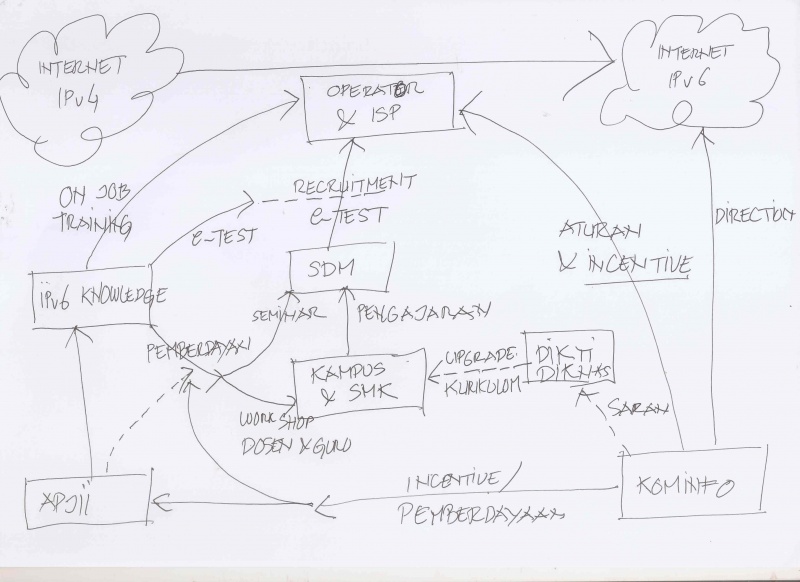 INTERNET
IPv4
INTERNET
IPv6
OPERATOR
& ISP
ON JOB
TRAINING
RECRUITMENT
e-TEST
e-TEST
DIRECTION
ATURAN
& INCENTIVE
SDM
IPv6 KNOWLEDGE
SEMINAR
PENGAJARAN
PEMBERDAYAAN
KAMPUS
& SMK
UPGRADE
KURIKULUM
DIKTI
DIKNAS
WORKSHOP
DOSEN & GURU
SARAN
APJII
INCENTIVE/
PEMBERDAYAAN
KOMINFO